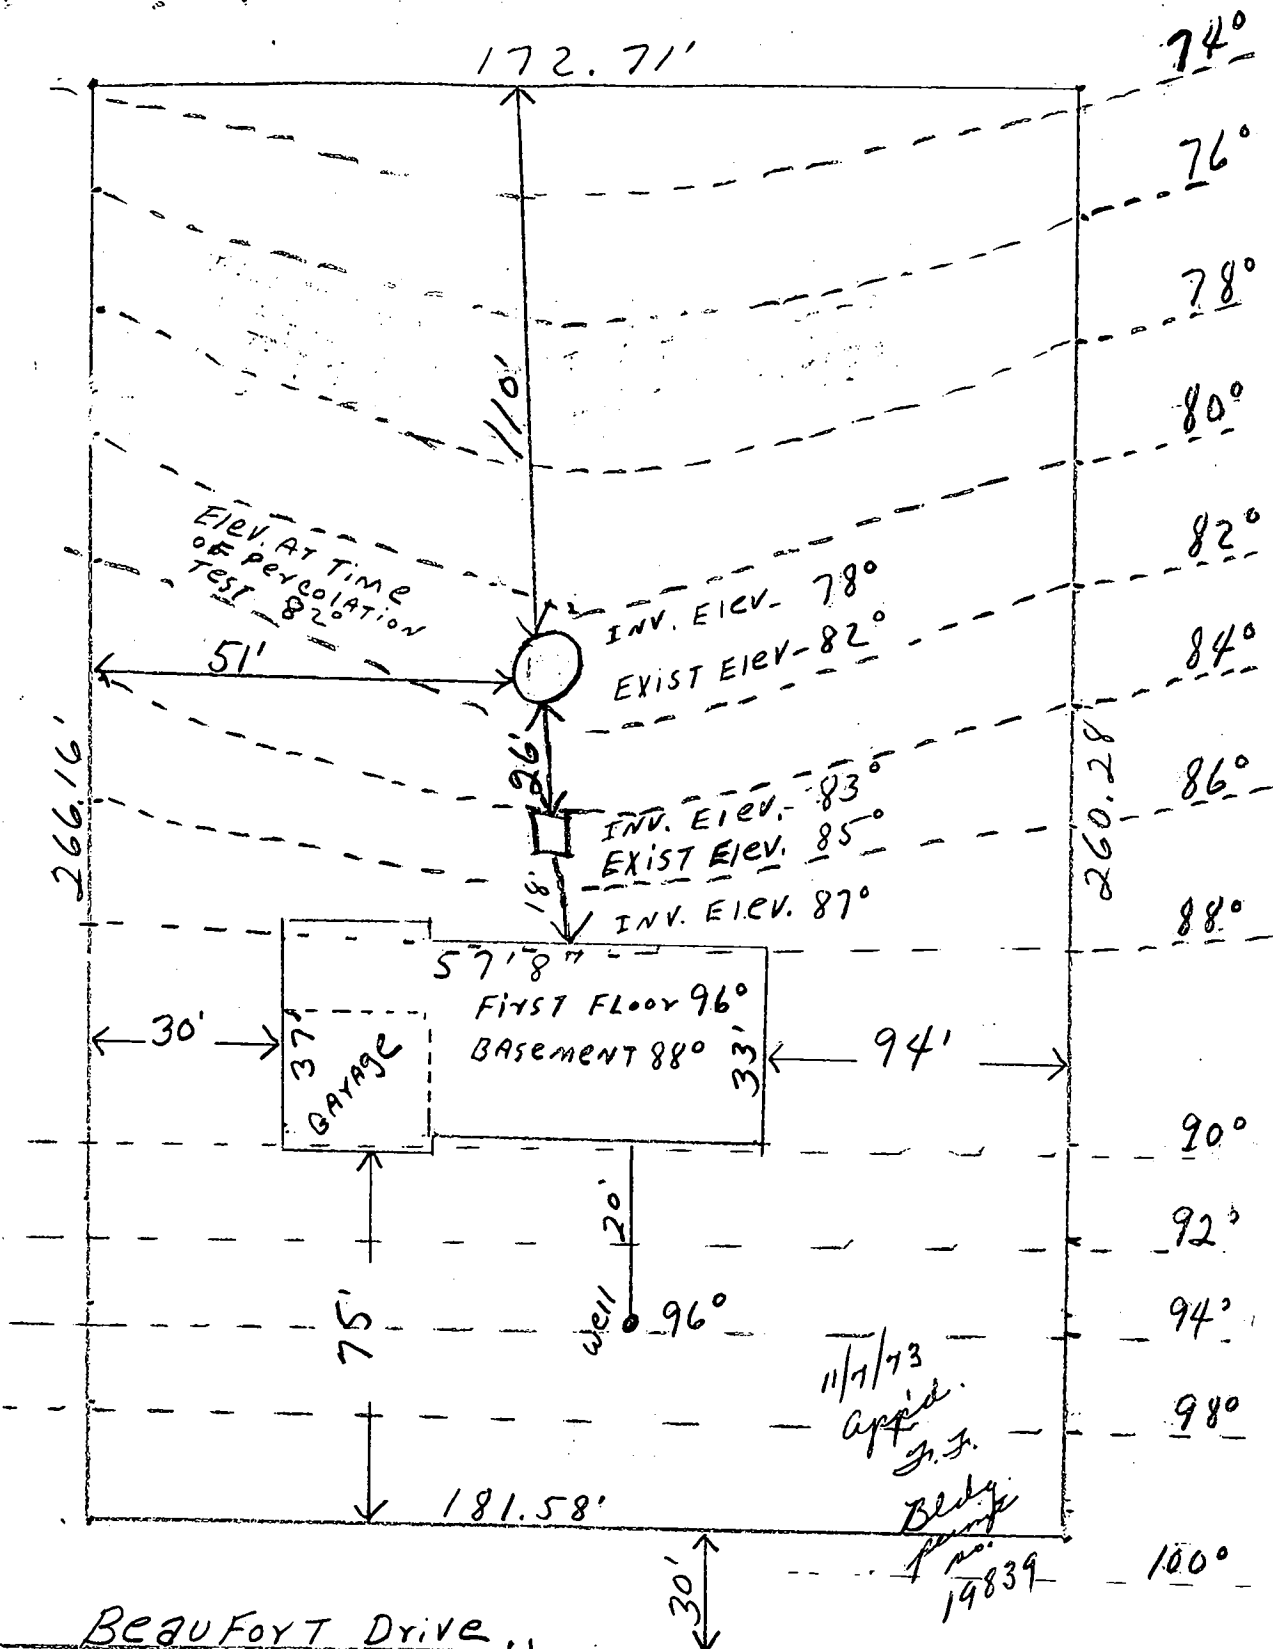 172.71'
74°
76°
78°
80°
82°
84°
86°
88°
90°
92°
94°
98°
100°
110'
Elev. At Time
of Percolation
Test 82°
INV. Elev- 78°
EXIST Elev- 82°
51'
26'
266.16'
260.28'
INV. Elev.- 83°
EXIST Elev. 85°
18'
INV. Elev. 87°
57'8"
First Floor 96°
Basement 88°
30'
37°
Garage
33'
94'
20'
Well
96°
75'
11/7/73
App'd.
F.F.
Bldg.
permit
no.
19839
181.58'
30'
Beaufort Drive